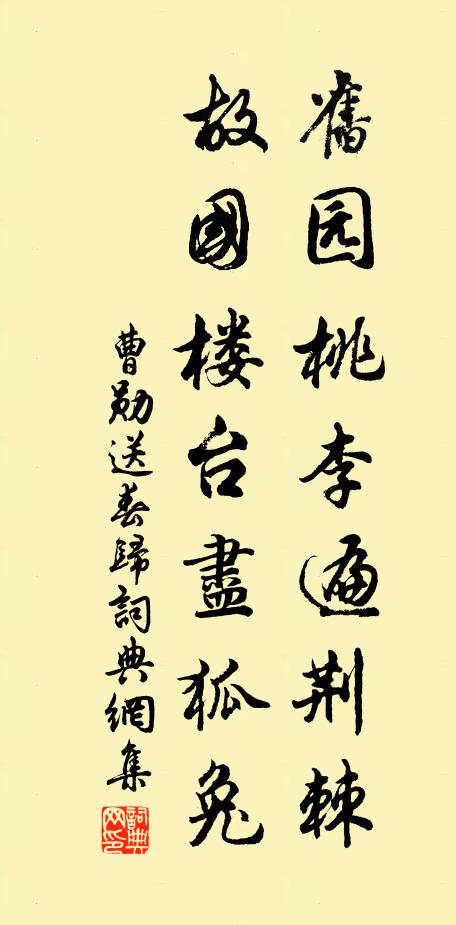 舊园桃李遍荆棘
故國楼台盡狐兔
曹勋送春歸詞典網集
詞典
网印